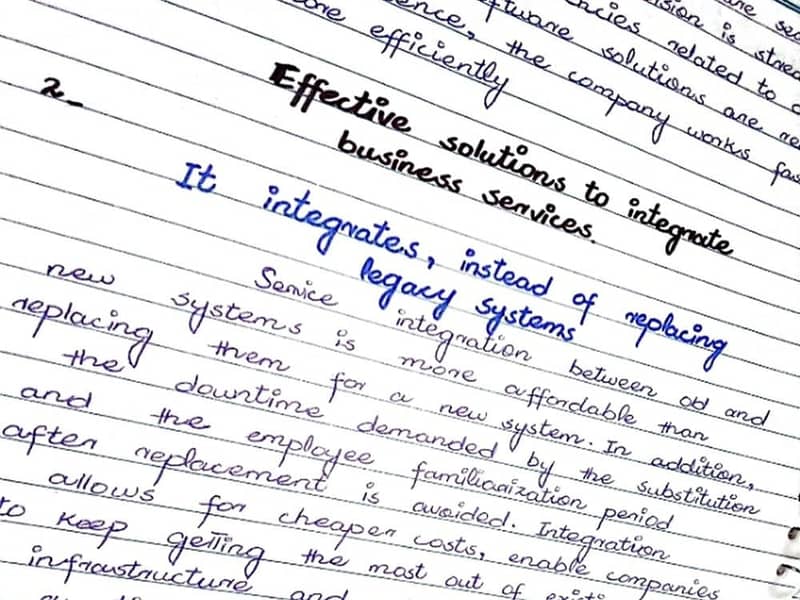 are sec
ision is stored
ncies related to c
ftware solutions are re
ence, the company works fas
ore efficiently
2_
Effective solutions to integrate
business services.
It integrates, instead of replacing
legacy systems
Service integration between old and
new systems is more affordable than
replacing them for a new system. In addition,
the downtime demanded by the substitution
and the employee familiarization period
after replacement is avoided. Integration
allows for cheaper costs, enable companies
to keep getting the most out of
infraustructure and